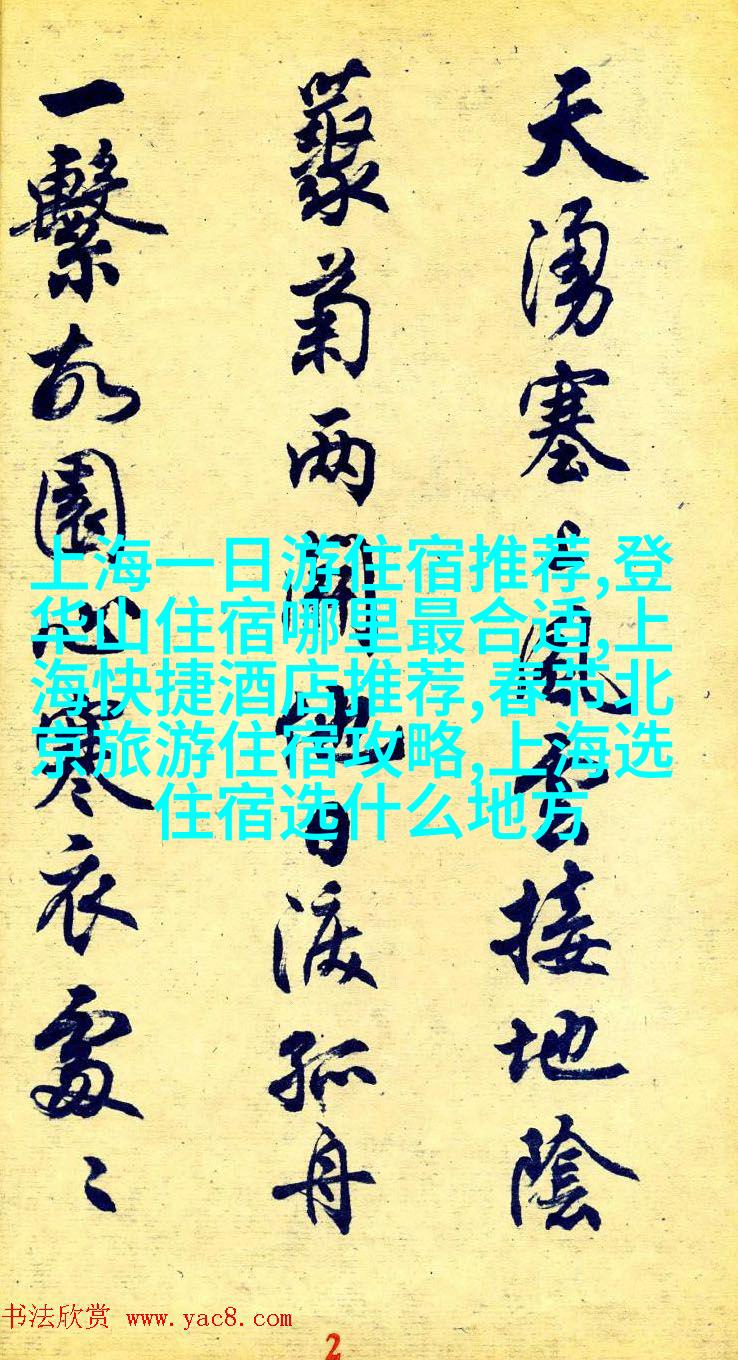 天湧塞上風雲接地陰
藂菊两開他日淚孤舟
一繫故園心寒衣處〻
上海一日游住宿推荐,登
华山住宿哪里最合适,上
海快捷酒店推荐,春节北
京旅游住宿攻略,上海选
住宿选什么地方
书法欣赏 www.yac8.com
2